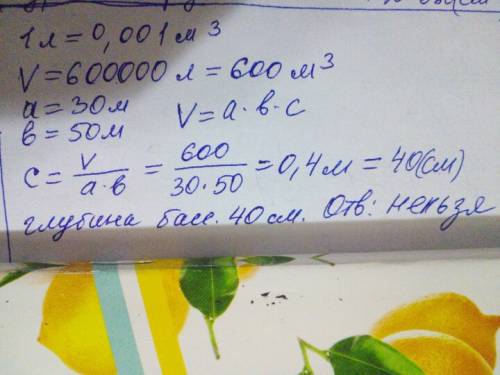 1 л = 0,001 м³
V = 600000 л = 600 м³
a = 30 м
в = 50 м V = a · в · c
c = V / a · в = 600 / 30 · 50 = 0,4 м = 40 (см)
глубина басс. 40 см. Отв: нельзя